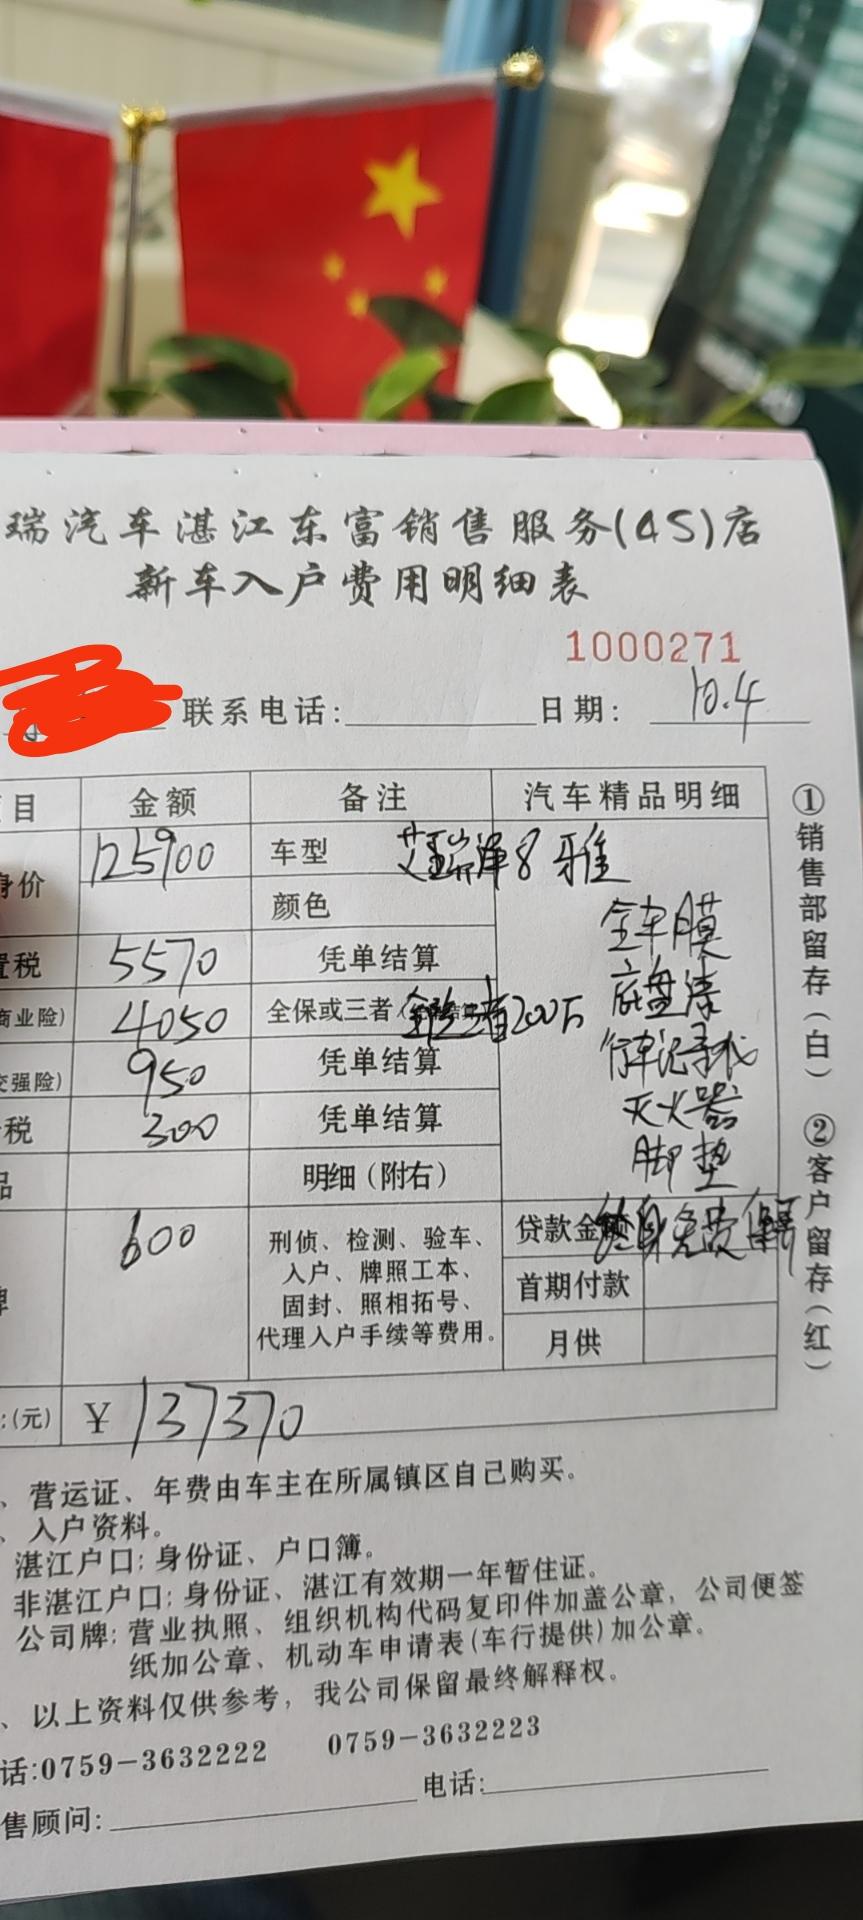 瑞汽车湛江东富销售服务(4S)店
新车入户费用明细表
1000271
联系电话: 日期: 10.4
目 金额 备注 汽车精品明细
身价 125900 车型 艾瑞泽8 雅
颜色
全车膜
置税 5570 凭单结算
底盘漆
商业险) 4050 全保或三者 全险三者200万
行车记录仪
交强险) 950 凭单结算
灭火器
税 300 凭单结算
脚垫
品 明细(附右)
终身免费保养
牌 600 刑侦、检测、验车、
入户、牌照工本、
固封、照相拓号、
代理入户手续等费用。
贷款金额
首期付款
月供
:(元) ¥ 137370
①销售部留存(白) ②客户留存(红)
、营运证、年费由车主在所属镇区自己购买。
、入户资料。
湛江户口:身份证、户口簿。
非湛江户口:身份证、湛江有效期一年暂住证。
公司牌:营业执照、组织机构代码复印件加盖公章,公司便签
纸加公章、机动车申请表(车行提供)加公章。
、以上资料仅供参考,我公司保留最终解释权。
话:0759-3632222 0759-3632223
售顾问: 电话: